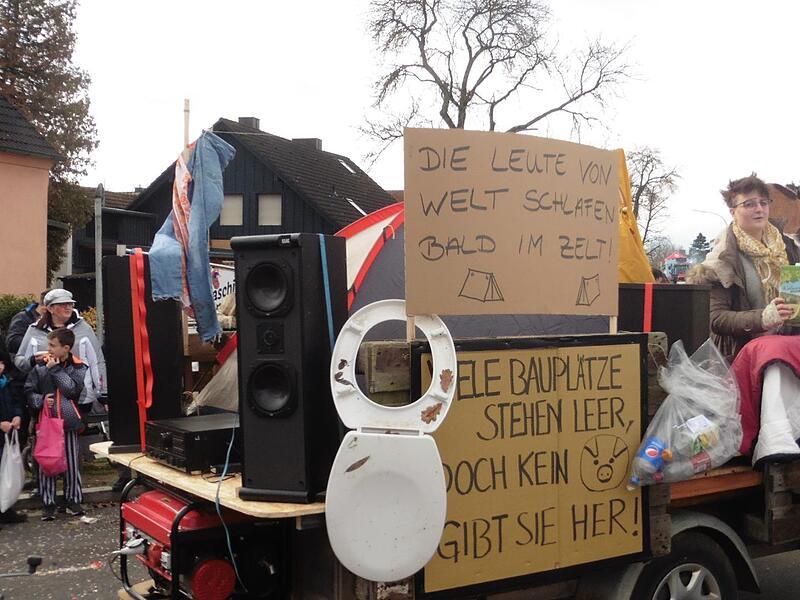 DIE LEUTE VON
WELT SCHLAFEN
BALD IM ZELT!
VIELE BAUPLÄTZE
STEHEN LEER,
DOCH KEIN
GIBT SIE HER!